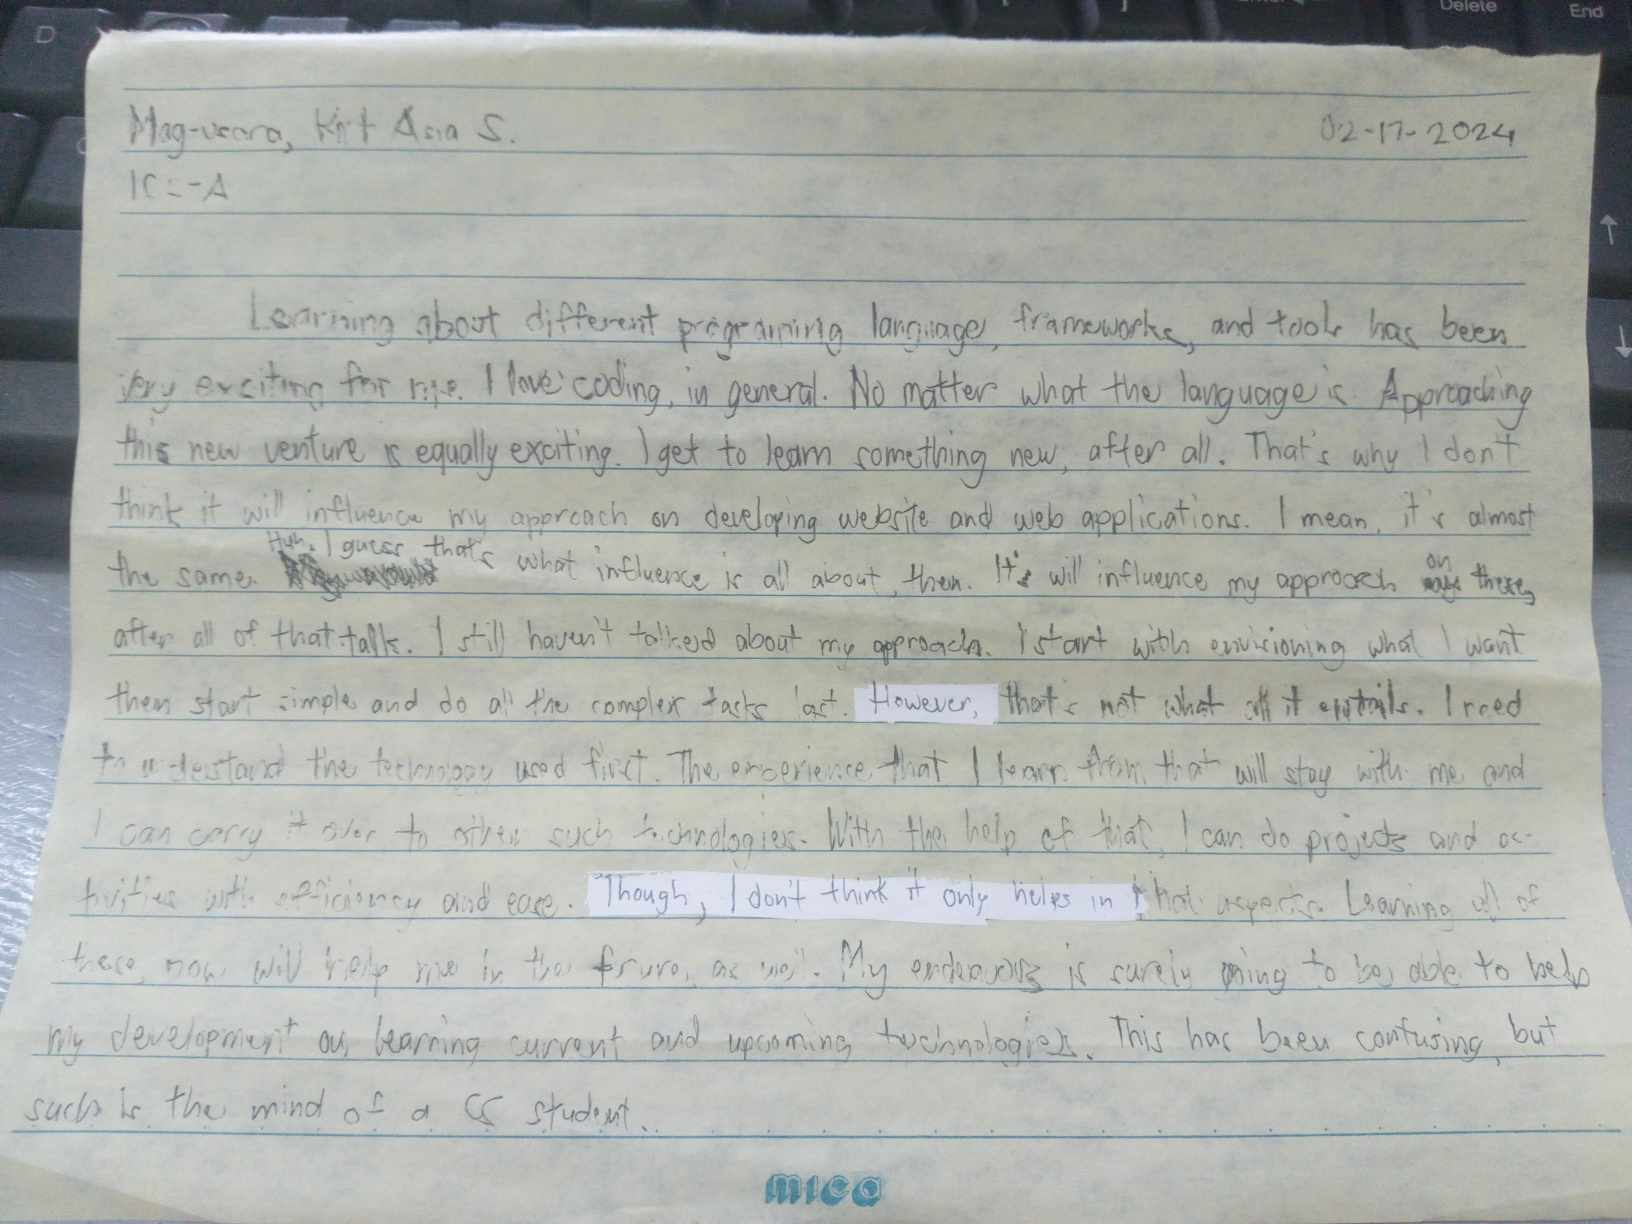 D
Delete
End
Mag-usara, Krit Asia S. 02-17-2024
1CS-A
Learning about different programing language, frameworks, and tools has been
very exciting for me. I love coding, in general. No matter what the language is. Approaching
this new venture is equally exciting. I get to learn something new, after all. That's why I don't
think it will influence my approach on developing website and web applications. I mean, it's almost
the same. Huh. I guess that's what influence is all about, then. It's will influence my approach on these,
after all of that talk. I still haven't talked about my approach. I start with envisioning what I want
then start simple and do all the complex tasks last. However, that's not what all it entails. I need
to understand the technology used first. The experience that I learn from that will stay with me and
I can carry it over to other such technologies. With the help of that, I can do projects and ac-
tivities with efficiency and ease. Though, I don't think it only helps in that aspects. Learning all of
these now will help me in the future, as well. My endeavors is surely going to be able to help
my development on learning current and upcoming technologies. This has been confusing, but
such is the mind of a CS student.
mica